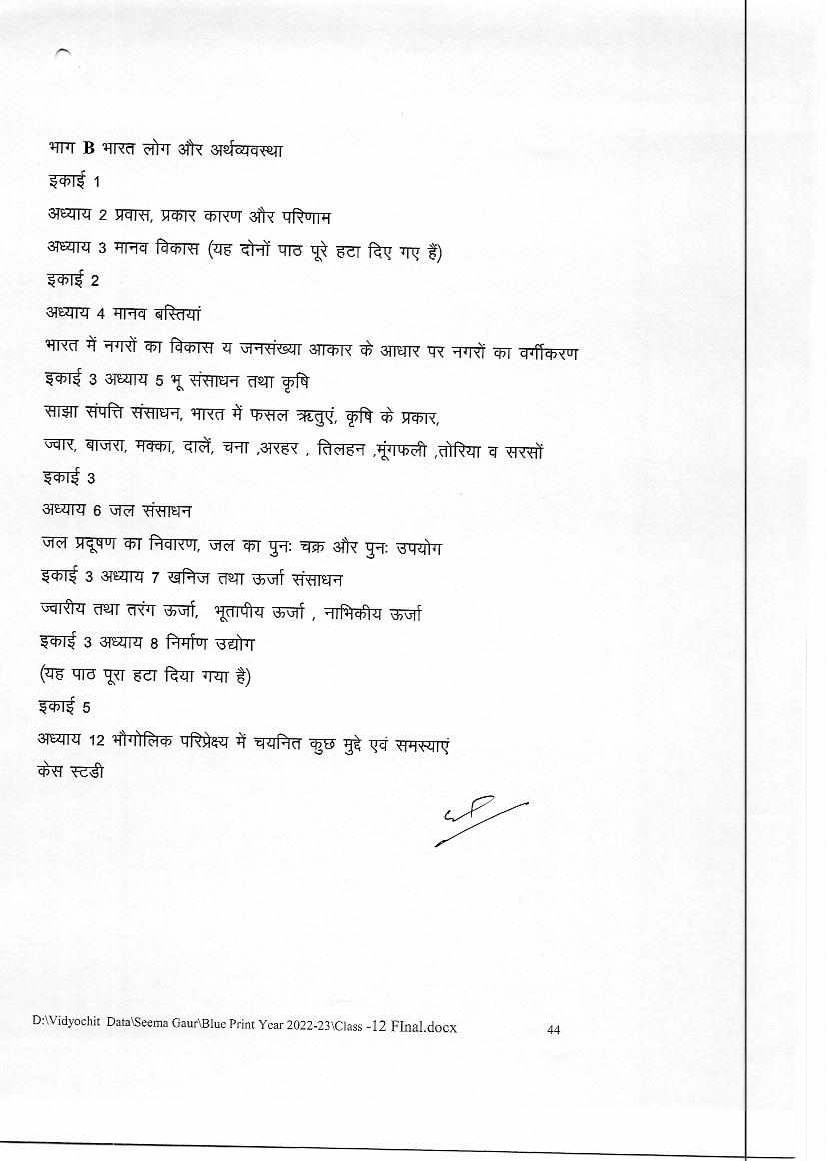 भाग B भारत लोग और अर्थव्यवस्था
इकाई 1
अध्याय 2 प्रवास, प्रकार कारण और परिणाम
अध्याय 3 मानव विकास (यह दोनों पाठ पूरे हटा दिए गए हैं)
इकाई 2
अध्याय 4 मानव बस्तियां
भारत में नगरों का विकास य जनसंख्या आकार के आधार पर नगरों का वर्गीकरण
इकाई 3 अध्याय 5 भू संसाधन तथा कृषि
साझा संपत्ति संसाधन, भारत में फसल ऋतुएं, कृषि के प्रकार,
ज्वार, बाजरा, मक्का, दालें, चना ,अरहर , तिलहन ,मूंगफली ,तोरिया व सरसों
इकाई 3
अध्याय 6 जल संसाधन
जल प्रदूषण का निवारण, जल का पुनः चक्र और पुनः उपयोग
इकाई 3 अध्याय 7 खनिज तथा ऊर्जा संसाधन
ज्वारीय तथा तरंग ऊर्जा, भूतापीय ऊर्जा , नाभिकीय ऊर्जा
इकाई 3 अध्याय 8 निर्माण उद्योग
(यह पाठ पूरा हटा दिया गया है)
इकाई 5
अध्याय 12 भौगोलिक परिप्रेक्ष्य में चयनित कुछ मुद्दे एवं समस्याएं
केस स्टडी
D:\Vidyochit Data\Seema Gaur\Blue Print Year 2022-23\Class -12 FInal.docx 44